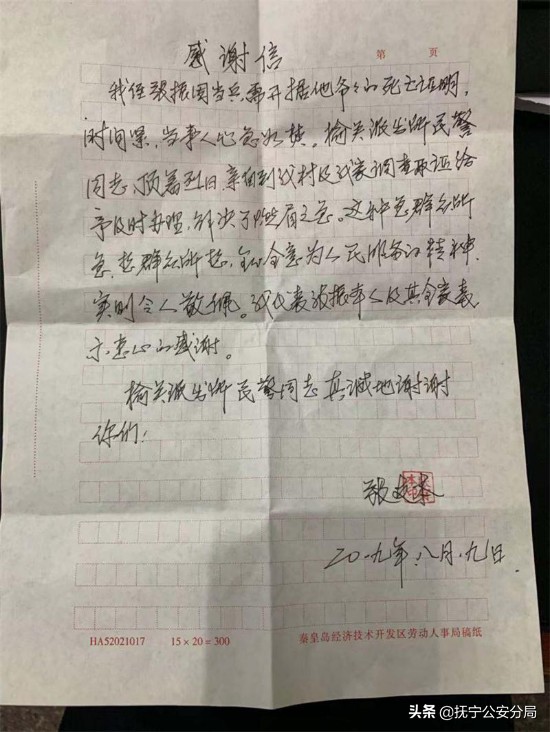 感谢信
第 页
我侄张振国当兵需开据他爷爷的死亡证明,
时间紧,当事人心急如焚。榆关派出所民警
同志,顶着烈日,亲自到我村及我家调查取证给
予及时办理,解决了燃眉之急。这种急群众所
急,想群众所想,全心全意为人民服务的精神,
实则令人敬佩。我代表被振本人及其全家表
示衷心的感谢。
榆关派出所民警同志真诚地谢谢
你们!
张
二〇一九年八月九日
HA52021017 15×20=300 秦皇岛经济技术开发区劳动人事局稿纸
头条 @抚宁公安分局